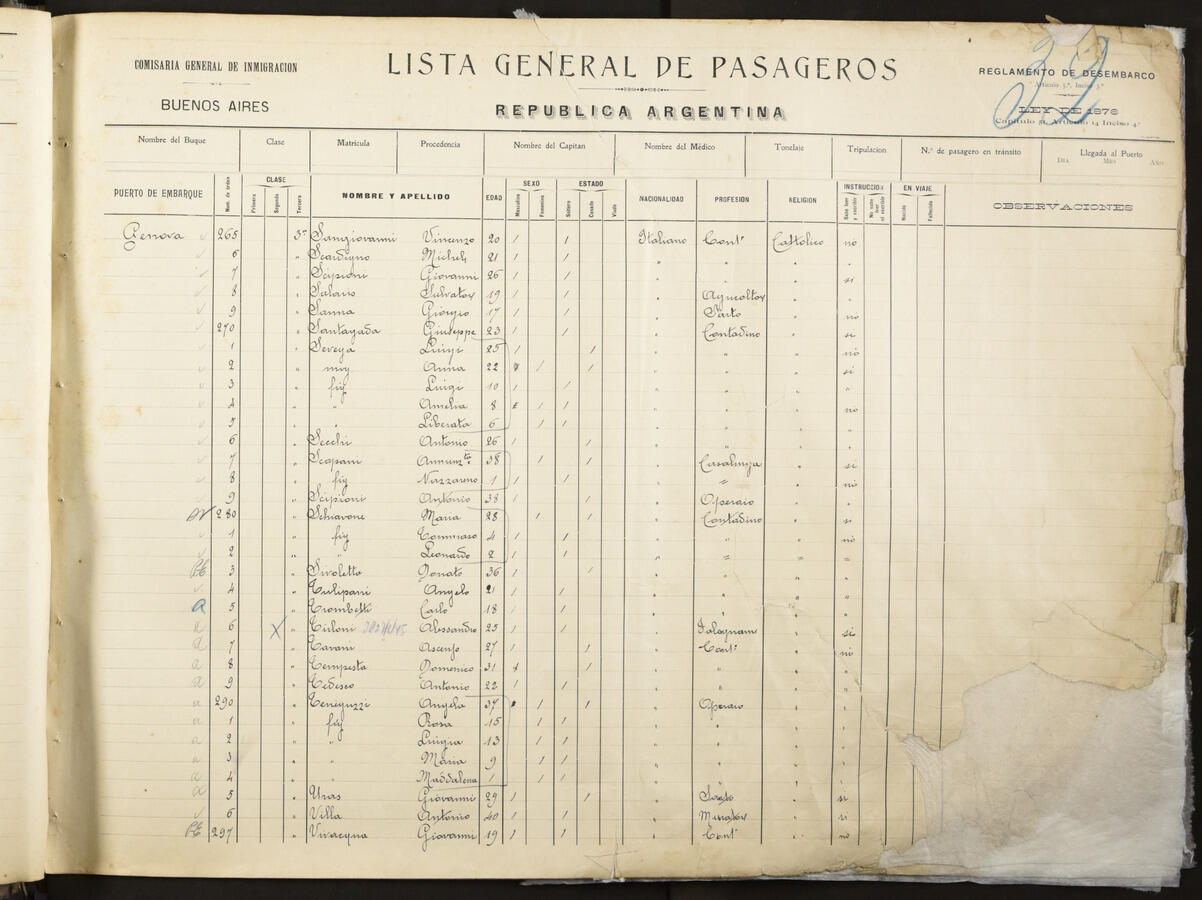 32
COMISARIA GENERAL DE INMIGRACION
LISTA GENERAL DE PASAGEROS
REGLAMENTO DE DESEMBARCO
Articulo 5º, Inciso 5º
BUENOS AIRES
REPUBLICA ARGENTINA
LEY DE 1876
Capitulo 5º, Articulo 14 Inciso 4º
Nombre del Buque Clase Matricula Procedencia Nombre del Capitan Nombre del Médico Tonelaje Tripulacion N.º de pasagero en tránsito Llegada al Puerto
DIA MES AÑO
PUERTO DE EMBARQUE Num. de órden CLASE Primera Segunda Tercera NOMBRE Y APELLIDO EDAD SEXO Masculino Femenino ESTADO Soltero Casado Viudo NACIONALIDAD PROFESIÓN RELIGION INSTRUCCION Sabe leer y escribir No sabe leer ni escribir EN VIAJE Nacido Fallecido OBSERVACIONES
Genova 265 3ª Sangiovanni Vincenzo 20 / / Italiano Contº Cattolico no
6 " Scardigno Michele 21 / / " " " "
7 " Scipioni Giovanni 26 / / " " " si
8 " Salano Salvator 19 / / " Agricoltor " "
9 " Sanna Giorgio 17 / / " Sarto " no
270 " Santagada Giuseppe 23 / / " Contadino " si
1 " Luigi 25 / / " " " no
2 " mog Anna 22 / / " " " si
3 " fig Luigi 10 / / " " " "
4 " " Amelia 8 / / " " " no
5 " " Liberata 6 / / " " " "
6 " Secchi Antonio 26 / / " " " "
7 " Scapani Annunzta 38 / / " Casalinga " si
8 " fig Nazzareno 1 / / " " " no
9 " Scipioni Antonio 38 / / " Operaio " "
280 " Schiavone Maria 28 / / " Contadino " si
1 " fig Tommaso 4 / / " " " no
2 " " Leonardo 2 / / " " " "
3 " Sivoletta Donato 36 / / " " " "
4 " Tulipani Angelo 21 / / " " " "
a 5 " Trombetti Carlo 18 / / " " " "
a 6 X " Tirloni Alessandro 25 / / " " si
a 7 " Tavani Ascenzo 27 / / " Contº " no
a 8 " Tempesta Domenico 31 / / " " " "
a 9 " Tedesco Antonio 22 / / " " " "
a 290 " Teneguzzi Angela 37 / / " Operaio " "
a 1 " fig Rosa 15 / / " " " "
a 2 " " Luigia 13 / / " " " "
a 3 " " Maria 9 / / " " " "
a 4 " " Maddalena 1 / / " " " "
a 5 " Uras Giovanni 29 / / " " si
6 " Villa Antonio 40 / / " Murator " si
297 " Vivacqua Giovanni 19 / / " Contº " no